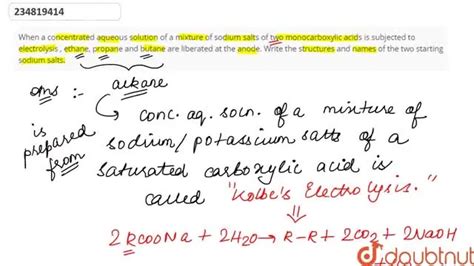 234819414
When a concentrated aqueous solution of a mixture of sodium salts of two monocarboxylic acids is subjected to
electrolysis , ethane, propane and butane are liberated at the anode. Write the structures and names of the two starting
sodium salts.
Ans :- alkane
is prepared from
→ conc. aq. soln. of a mixture of
sodium/potassium salts of a
saturated carboxylic acid is
called "Kolbe's Electrolysis."
2RCOONa + 2H2O → R-R + 2CO2 + 2NaOH
doubtnut